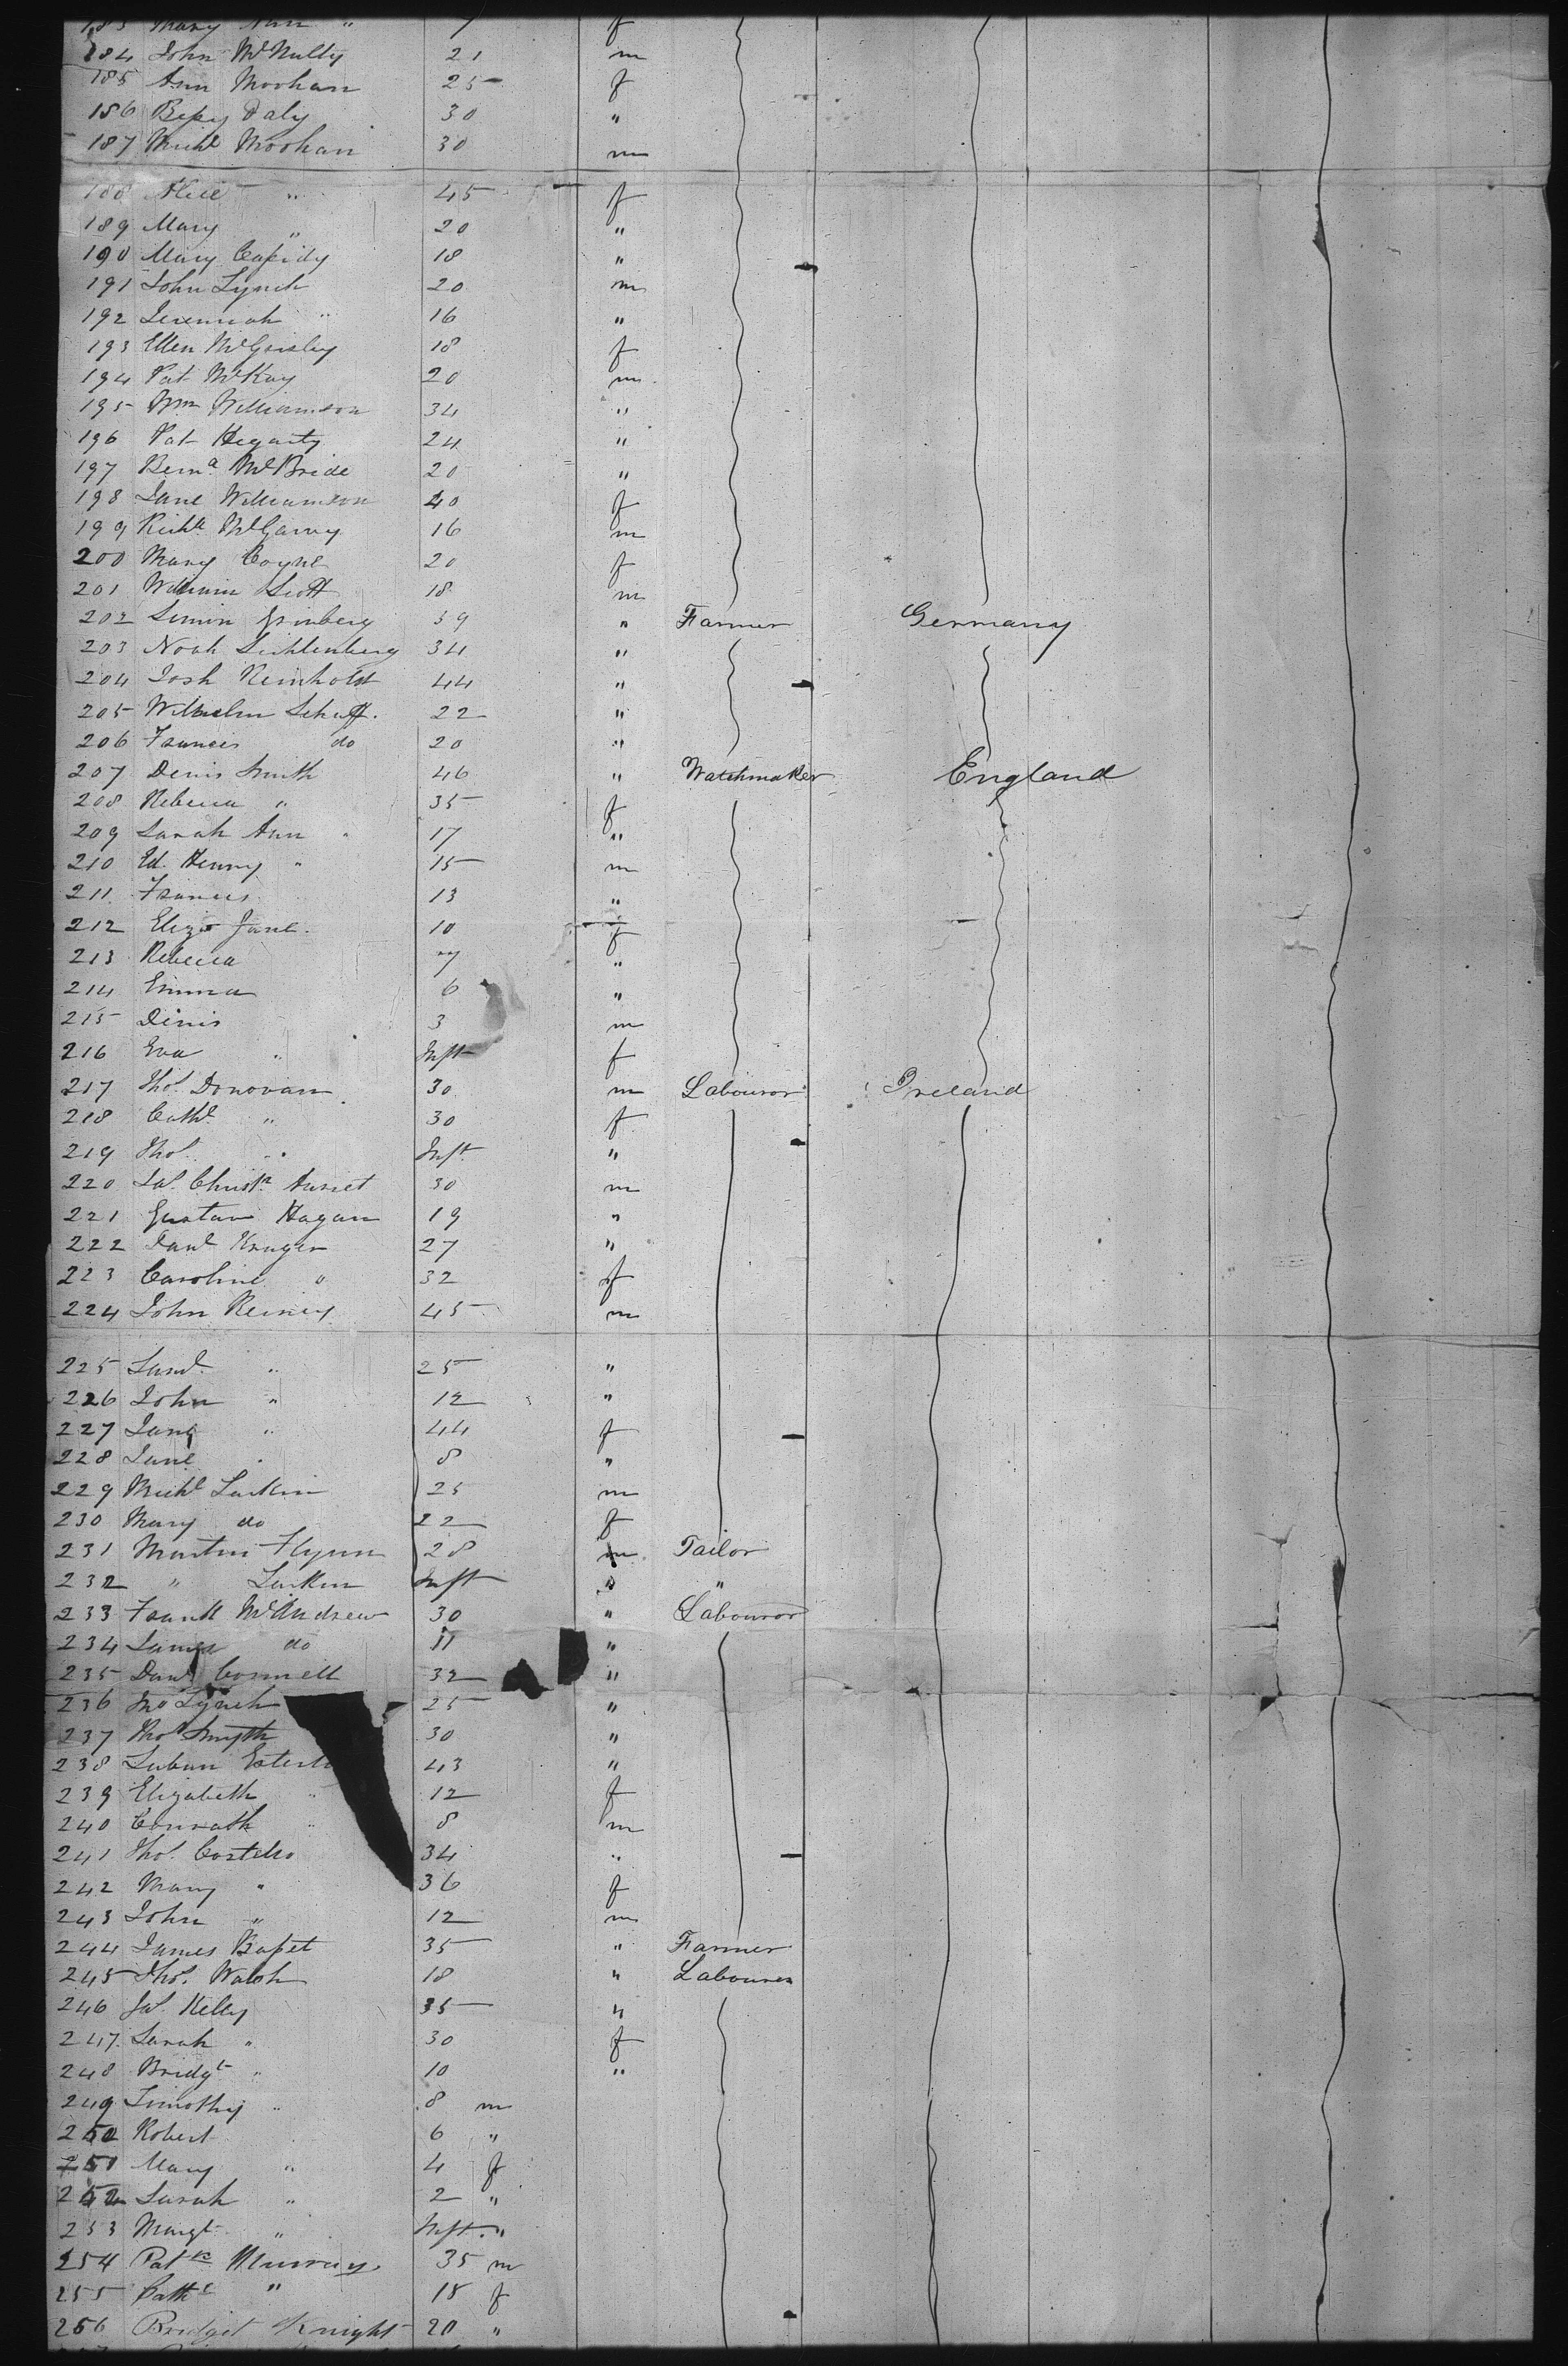 183 Mary Ann " 7 f
184 John McNulty 21 m
185 Ann Moohan 25 f
186 Bessy Daly 30 "
187 Michl Moohan 30 m
188 Alice " 45 f
189 Mary " 20 "
190 Mary Cassidy 18 "
191 John Lynch 20 m
192 Jeremiah " 16 "
193 Ellen 18 f
194 Pat McKay 20 m
195 Wm Williamson 34 "
196 Pat Hegarty 24 "
197 McBride 20 "
198 Jane Williamson 40 f
199 McGarvy 16 m
200 Mary Coyne 20 f
201 William Scott 18 m
202 Simon Grinberg 39 " Farmer Germany
203 Noah Lichtenberg 34 "
204 Josh Reinholdt 44 "
205 Wilhelm 22 "
206 Frances do 20 "
207 Denis Smith 46 " Watchmaker England
208 Rebecca " 35 f
209 Sarah Ann " 17 "
210 Ed. Henry " 15 m
211 Frances 13 "
212 Eliza Jane 10 f
213 Rebecca 7 "
214 Emma 6 "
215 Dinis 3 m
216 Eva " Inft f
217 Thos Donovan 30 m Labouror Ireland
218 Cathe " 30 f
219 Thos " Inft "
220 Jas Christn 30 m
221 Gustav Hagan 19 "
222 Danl Kruger 27 "
223 Caroline " 32 f
224 John 45 m
225 Saml " 25 "
226 John " 12 "
227 Jane " 44 f
228 Jane " 8 "
229 Michl Larkin 25 m
230 Mary do 22 f
231 Martin Flynn 28 m Tailor
232 " Larkin Inft " "
233 Frank McAndrew 30 " Labouror
234 James do 11 "
235 Danl Connell 32 "
236 Jno Lynch 25 "
237 Thos Smyth 30 "
238 43 "
239 Elizabeth " 12 f
240 Conrath " 8 m
241 Thos Costello 34 "
242 Mary " 36 f
243 John " 12 m
244 James Basset 35 " Farmer
245 Thos. Walsh 18 " Labourer
246 Jas Kelly 35 "
247 Sarah " 30 f
248 Bridgt " 10 "
249 Timothy " 8 m
250 Robert 6 "
251 Mary " 4 f
252 Sarah " 2 "
253 Margt " Inft. "
254 Patk Murray 35 m
255 Cathe " 18 f
256 Bridget Knight 20 "